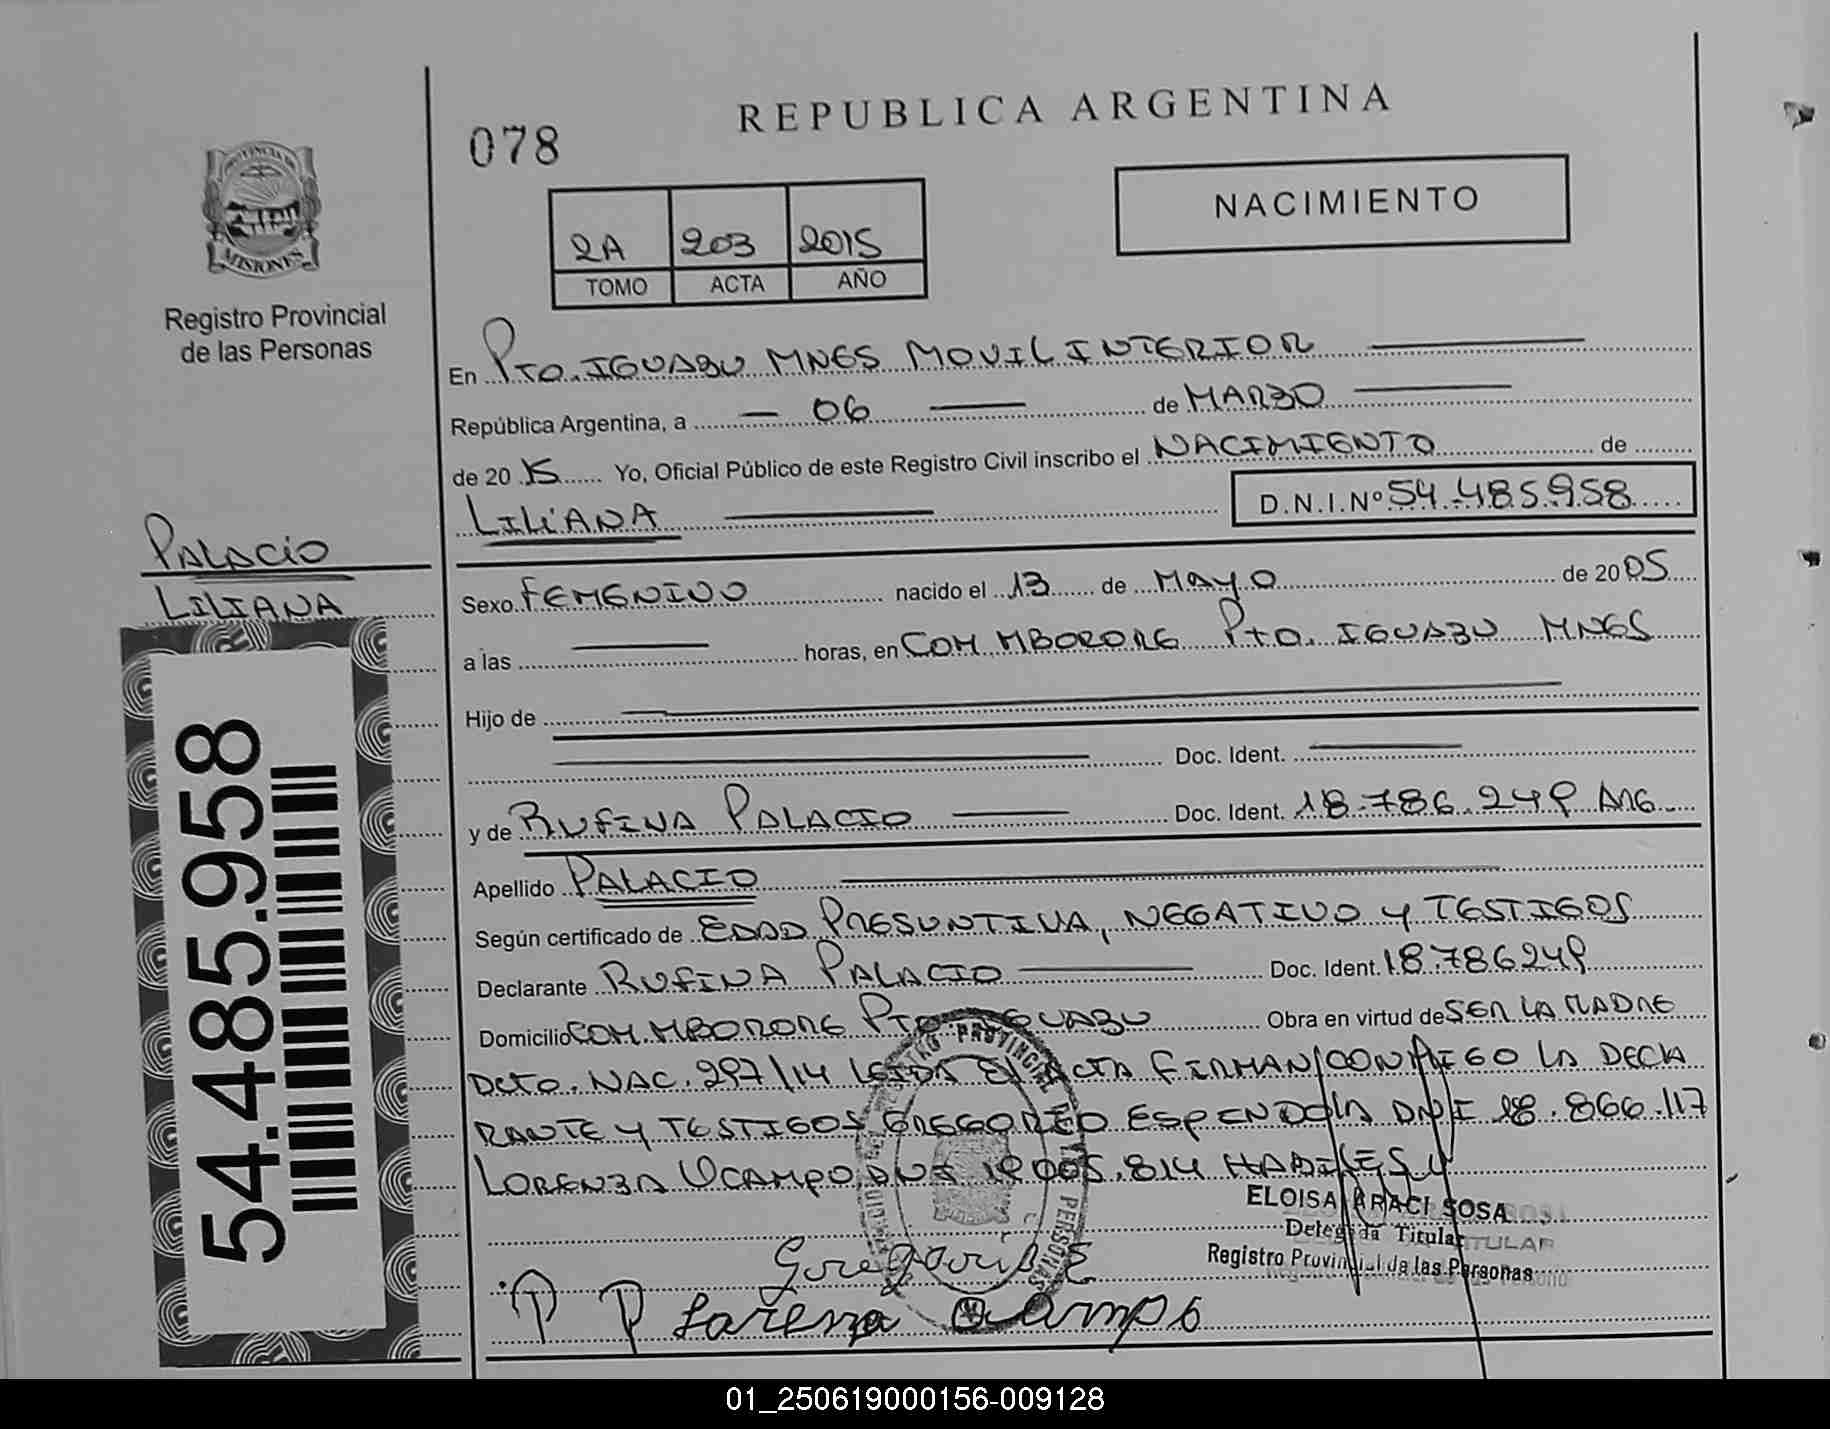 REPUBLICA ARGENTINA
078
NACIMIENTO
2A 203 2015
TOMO ACTA AÑO
PROVINCIA DE
MISIONES
Registro Provincial
de las Personas
En Pto. IGUAZU MNES MOVIL INTERIOR
República Argentina, a 06 de MARZO
de 2015 Yo, Oficial Público de este Registro Civil inscribo el NACIMIENTO de
LILIANA D.N.I. Nº 54.485.958
PALACIO
LILIANA
54.485.958
Sexo FEMENINO nacido el 13 de MAYO de 2005
a las horas, en COM MBORORE Pto. IGUAZU MNES
Hijo de
Doc. Ident.
y de RUFINA PALACIO Doc. Ident. 18.786.249 ARG
Apellido PALACIO
Según certificado de EDAD PRESUNTIVA, NEGATIVO y TESTIGOS
Declarante RUFINA PALACIO Doc. Ident. 18.786249
Domicilio COM MBORORE Pto IGUAZU Obra en virtud de SER LA MADRE
Dcto. NAC. 297/14 LEIDA EL ACTA FIRMAN CONMIGO LA DECLA
RANTE Y TESTIGOS GREGORIO ESPENDOLA DNI 18.866.117
LORENZA OCAMPO DNI 19.005.814 HABILES
ELOISA ARACI SOSA
Delegada Titular
Registro Provincial de las Personas
Gregorio E
Lorenza Ocampo
01_250619000156-009128